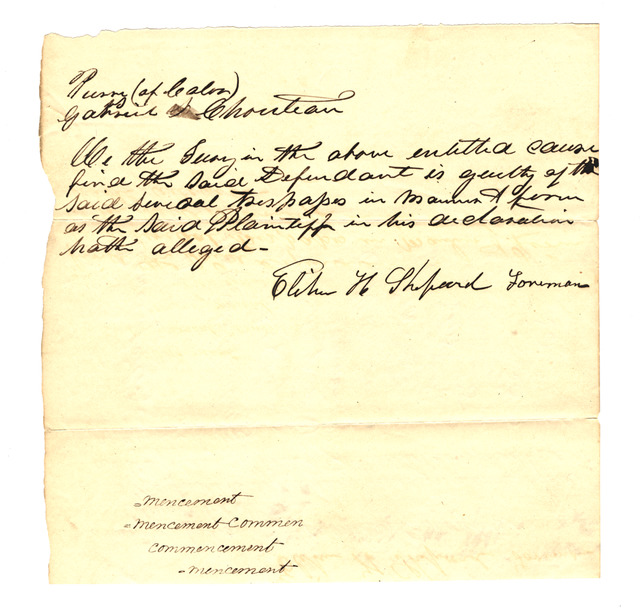 Pierre (of Color)
Gabriel S Chouteau
We the Jury in the above entitled cause
find the said Defendant is guilty of the
said several trespasses in manner & form
as the said Plaintiff in his declaration
hath alleged -
Elihu H Shepard Foreman
-mencement
-mencement Commen
commencement
-mencement-